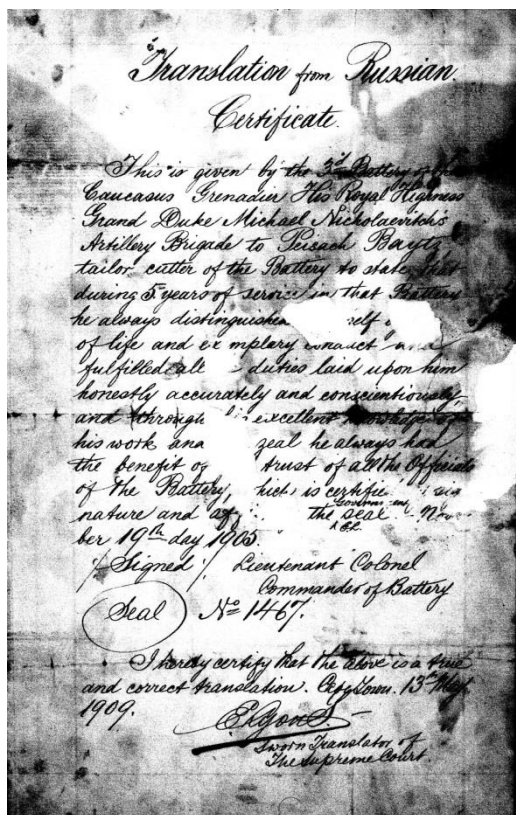 Translation from Russian.
Certificate.
This is given by the 3d Battery of the
Caucasus Grenadier His Royal Highness
Grand Duke Michael Nickolaevitch's
Artillery Brigade to Peisach Baytz
tailor, cutter of the Battery to state, that
during 5 years of service in that Battery
he always distinguished self
of life and exemplary conduct and
fulfilled all duties laid upon him
honestly accurately and conscientiously,
and through his excellent knowledge of
his work and zeal he always had
the benefit of trust of all the Officials
of the Battery, which is certified
nature and the Government seal
ber 19th day 1905.
/Signed/. Lieutenant Colonel
Commander of Battery
Seal No 1467.
I hereby certify that the above is a true
and correct translation. 13th
1909.
Sworn Translator of
The Supreme Court.